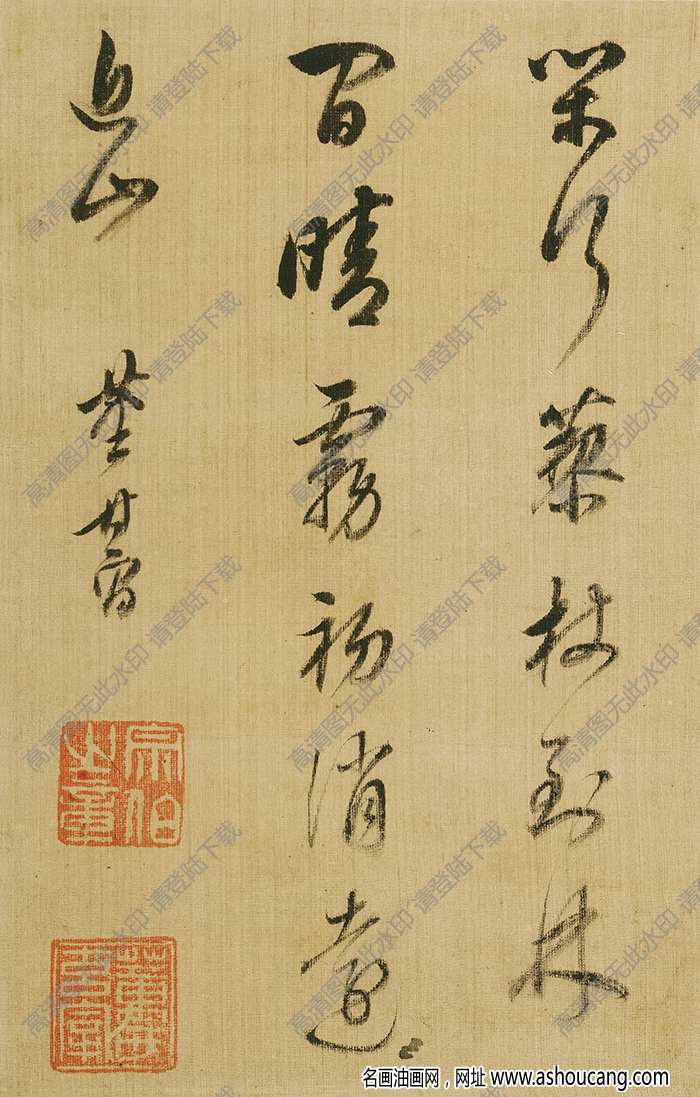 閒行藜杖到林
間晴霧初消遠
近山
董其昌
宗伯之章
高清图无此水印 请登陆下载
名画油画网，网址 www.ashoucang.com